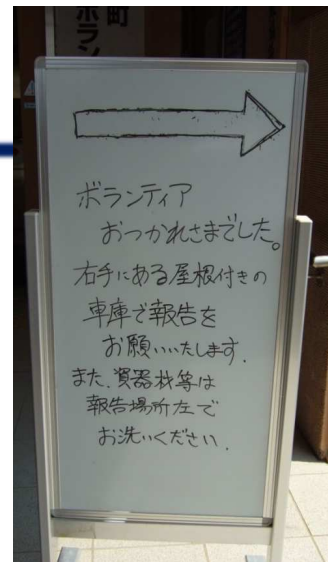 町
ボラン
ボランティア
おつかれさまでした。
右手にある屋根付きの
車庫で報告を
お願いいたします.
また、資器材等は
報告場所左で
お洗いください.